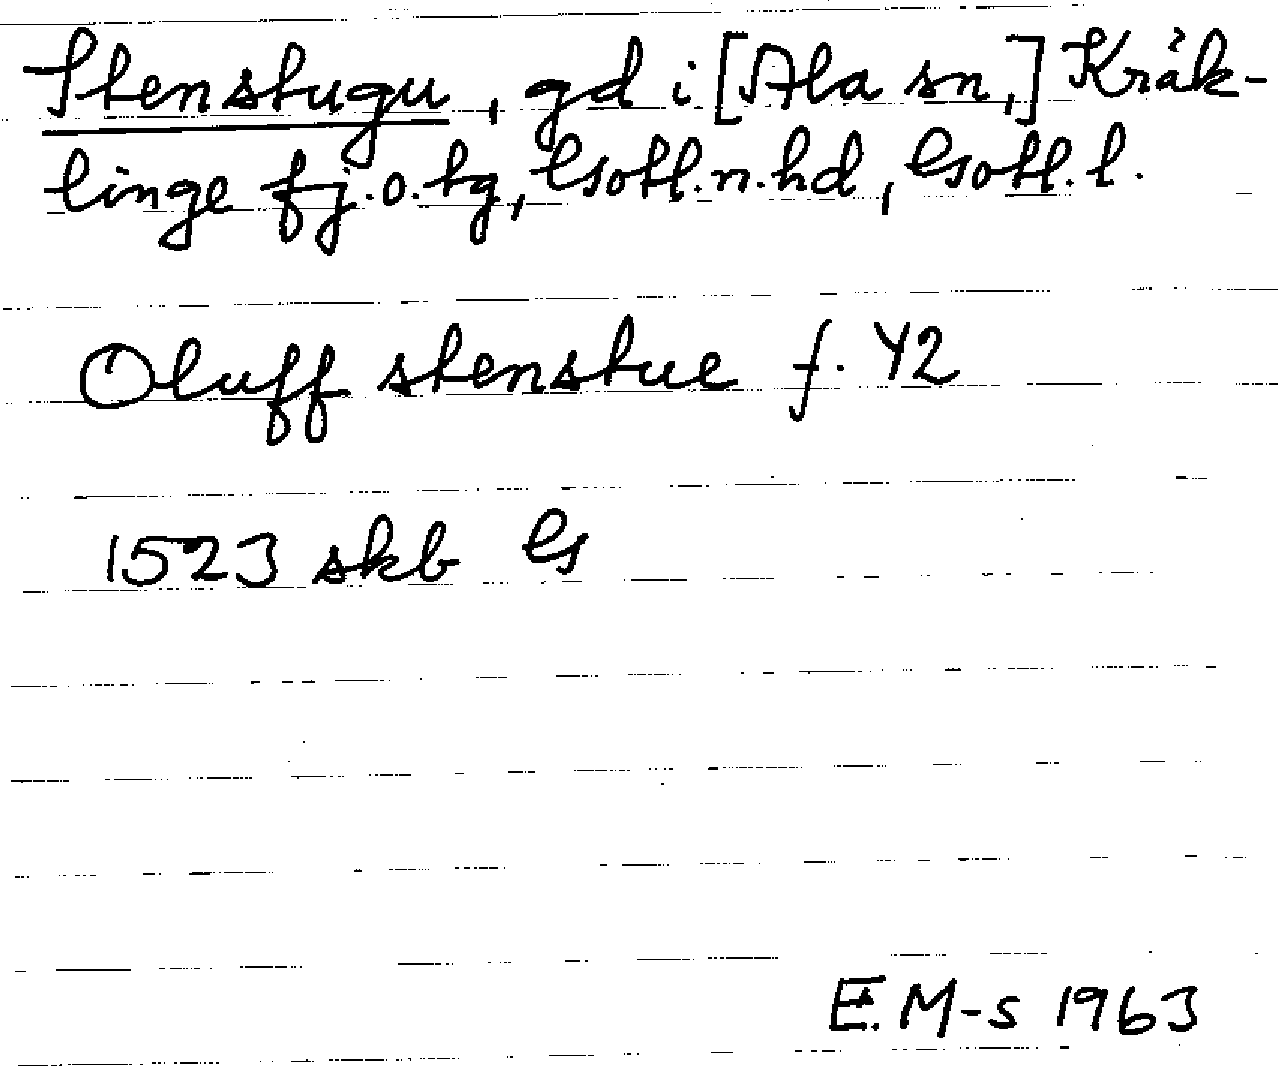 Stenstugu, gd i [Ala sn,] Kräk-
linge fj.o.tg, Gotl.n.hd, Gotl.l.
Oluff stenstue f. 42
1523 skb G
E.M-s 1963